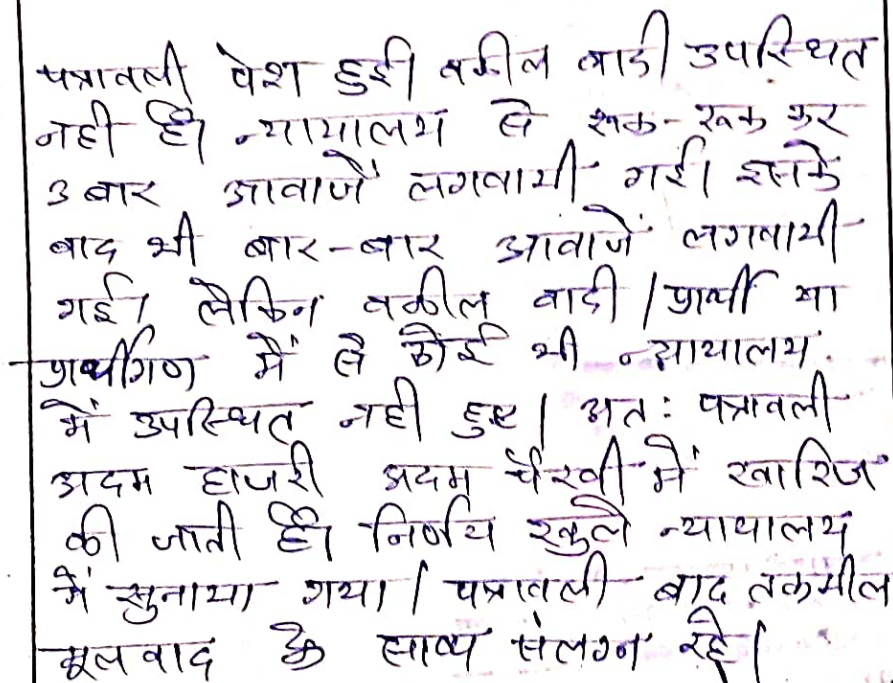 पत्रावली पेश हुई। वकील वादी उपस्थित
नही है। न्यायालय से रूक-रूक कर
3 बार आवाजें लगवायी गई। इसके
बाद भी बार-बार आवाजें लगवायी
गई। लेकिन वकील वादी / प्रार्थी या
प्रार्थीगण में से कोई भी न्यायालय
में उपस्थित नही हुए। अतः पत्रावली
अदम हाजरी अदम पैरवी में खारिज
की जाती है। निर्णय खुले न्यायालय
में सुनाया गया। पत्रावली बाद तकमील
मूलवाद के साथ संलग्न रहे।